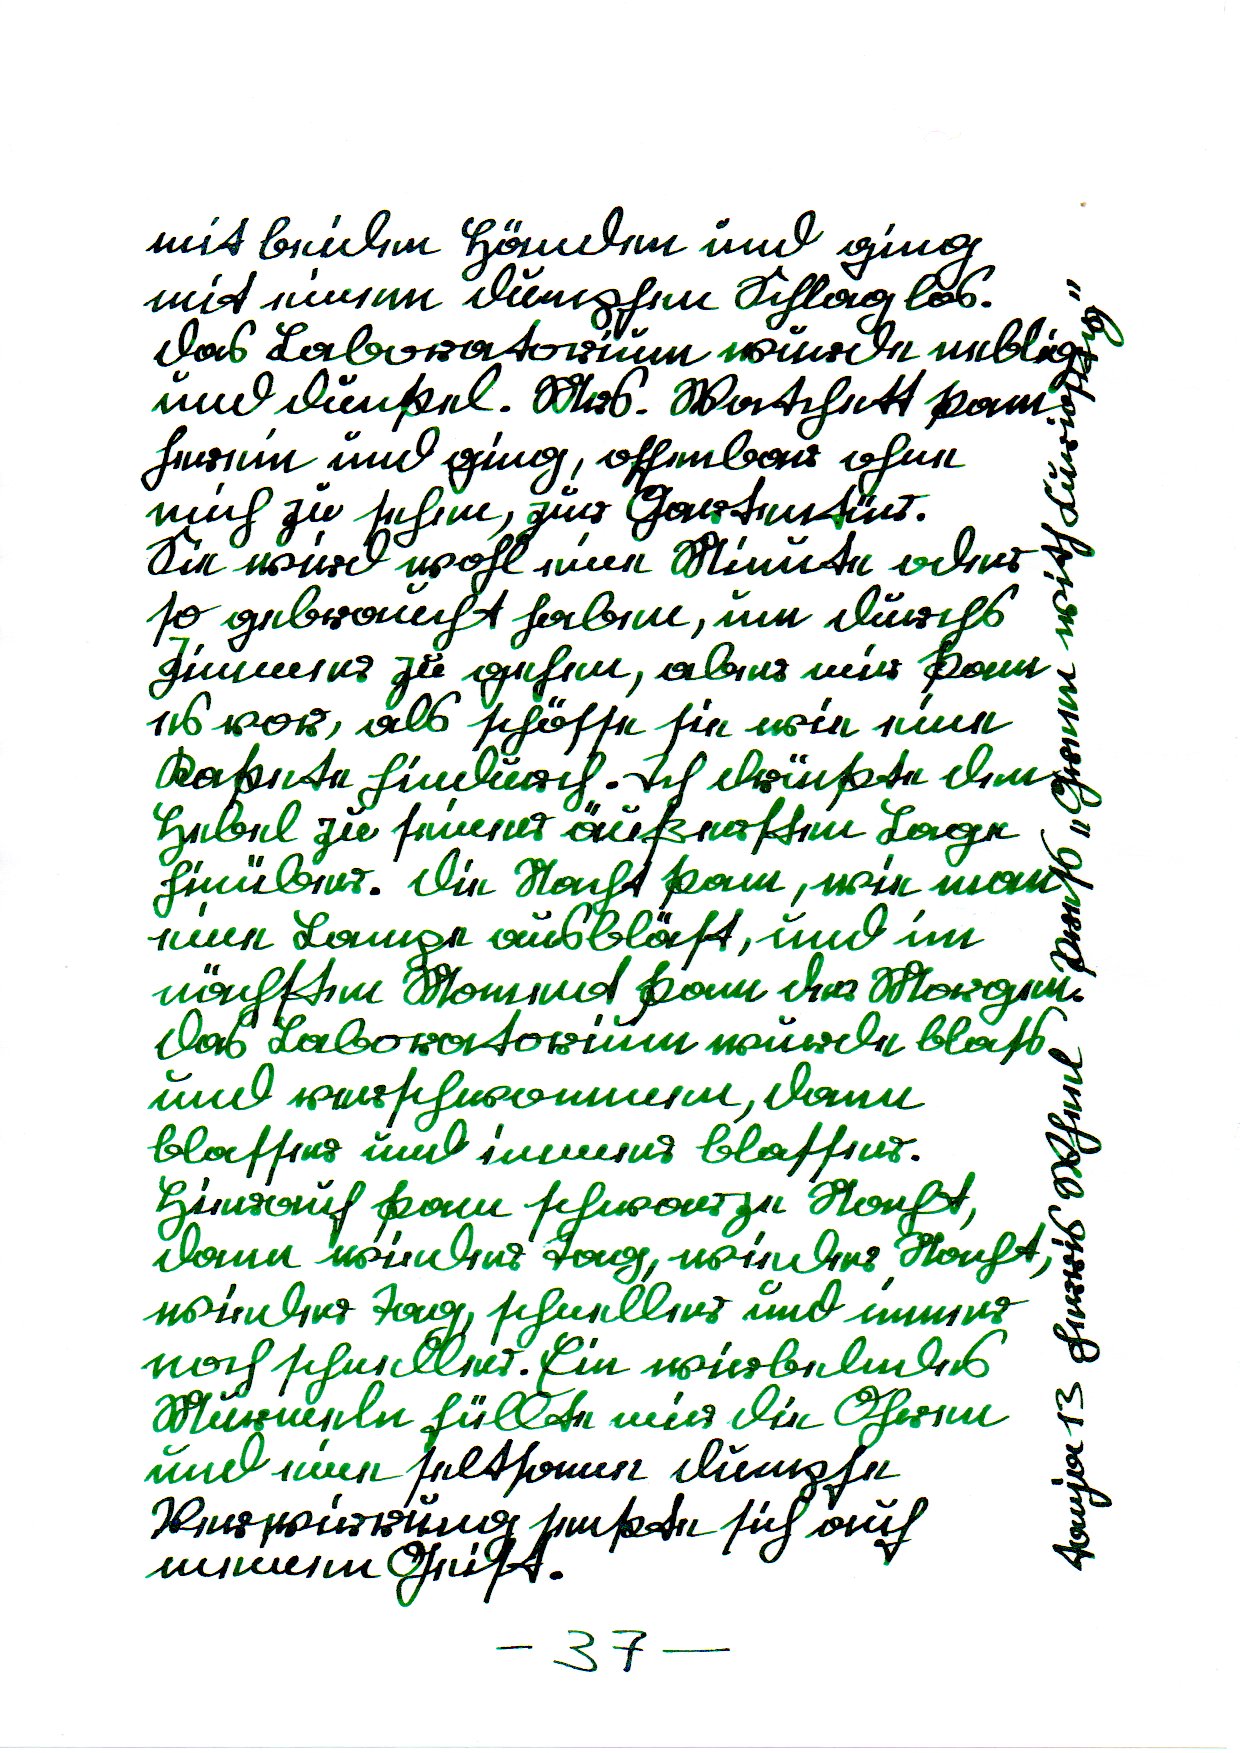 mit beiden Händen und ging
mit einem dumpfen Schlag los.
das Laboratorium wurde neblig
und dunkel. Mrs. Watchett kam
herein und ging, offenbar ohne
mich zu sehen, zur Gartentür.
Sie wird wohl eine Minute oder
so gebraucht haben, um durchs
Zimmer zu gehen, aber mir kam
es vor, als schösse sie wie eine
Rakete hindurch. Ich drückte den
Hebel zu seiner äußersten Lage
hinüber. die Nacht kam, wie man
eine Lampe ausbläst, und im
nächsten Moment kam der Morgen.
das Laboratorium wurde blass
und verschwommen, dann
blasser und immer blasser.
Hierauf kam schwarze Nacht,
dann wieder Tag, wieder Nacht,
wieder Tag, schneller und immer
noch schneller. Ein wirbelndes
Murmeln füllte mir die Ohren
und eine seltsame dumpfe
Verwirrung senkte sich auf
meinen Geist.
- 37 -